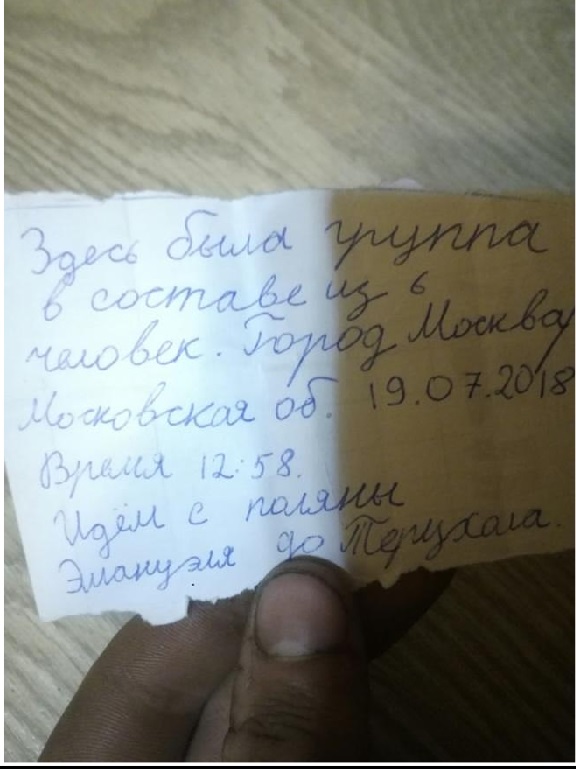 Здесь была группа
в составе из 6
человек. Город Москва
Московская об. 19.07.2018
Время 12:58.
Идём с поляны
Эмануэля до Терцхола.